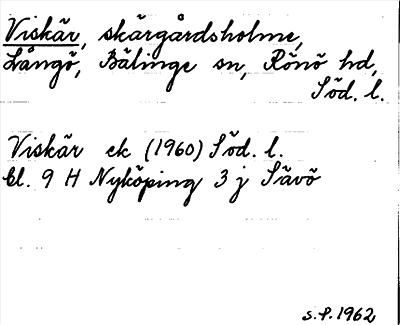 Viskär, skärgårdsholme,
Långö, Bälinge sn, Rönö hd,
Söd. l.
Viskär ek (1960) Söd. l.
Bl. 9 H Nyköping 3 j Sävö
S.P. 1962